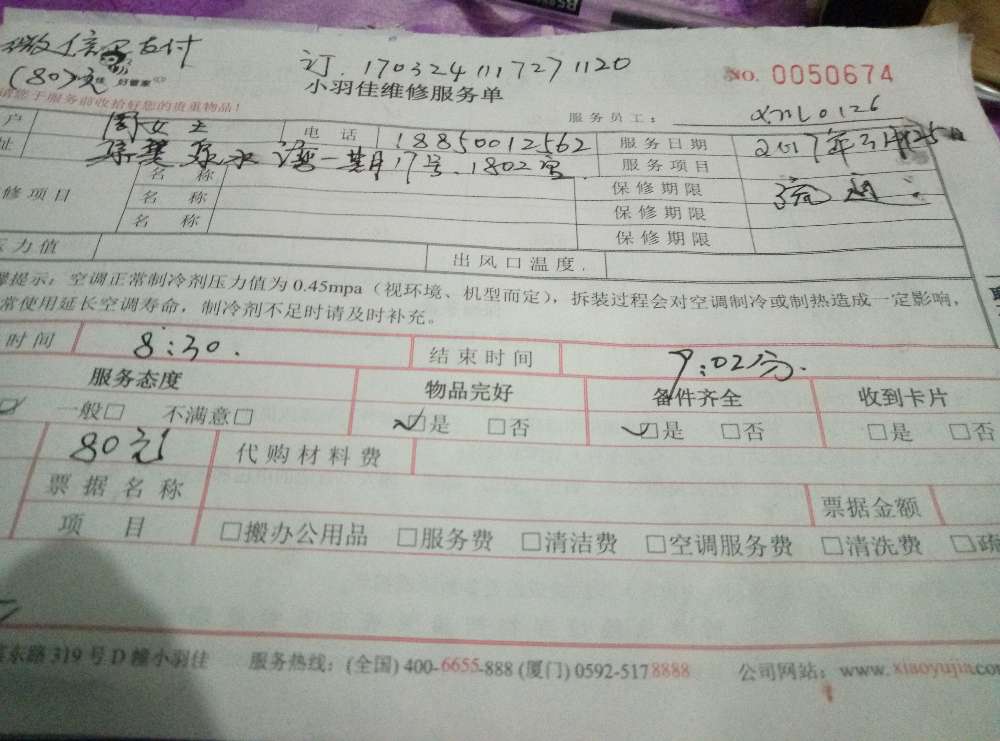 微信已支付
(80)元 好管家
订.170324111727 1120
小羽佳维修服务单
NO. 0050674
请您于服务前收拾好您的贵重物品!
服务员工: xml0126
户 周女士 电 话 18850012562 服务日期 2017年3月25日
址 一期17号.1802室 服务项目 疏通
修项目 名 称 保修期限
名 称 保修期限
名 称 保修期限
压力值 出风口温度.
提示:空调正常制冷剂压力值为0.45mpa(视环境、机型而定),拆装过程会对空调制冷或制热造成一定影响,
常使用延长空调寿命,制冷剂不足时请及时补充。
时间 8:30. 结束时间 9:02分.
服务态度 物品完好 备件齐全 收到卡片
一般□ 不满意□ □是 □否 □是 □否 □是 □否
80元 代购材料费
票据名称 票据金额
项 目 □搬办公用品 □服务费 □清洁费 □空调服务费 □清洗费 □疏
东路319号D幢小羽佳 服务热线:(全国)400-6655-888(厦门)0592-5178888 公司网站:www.xiaoyujia.com